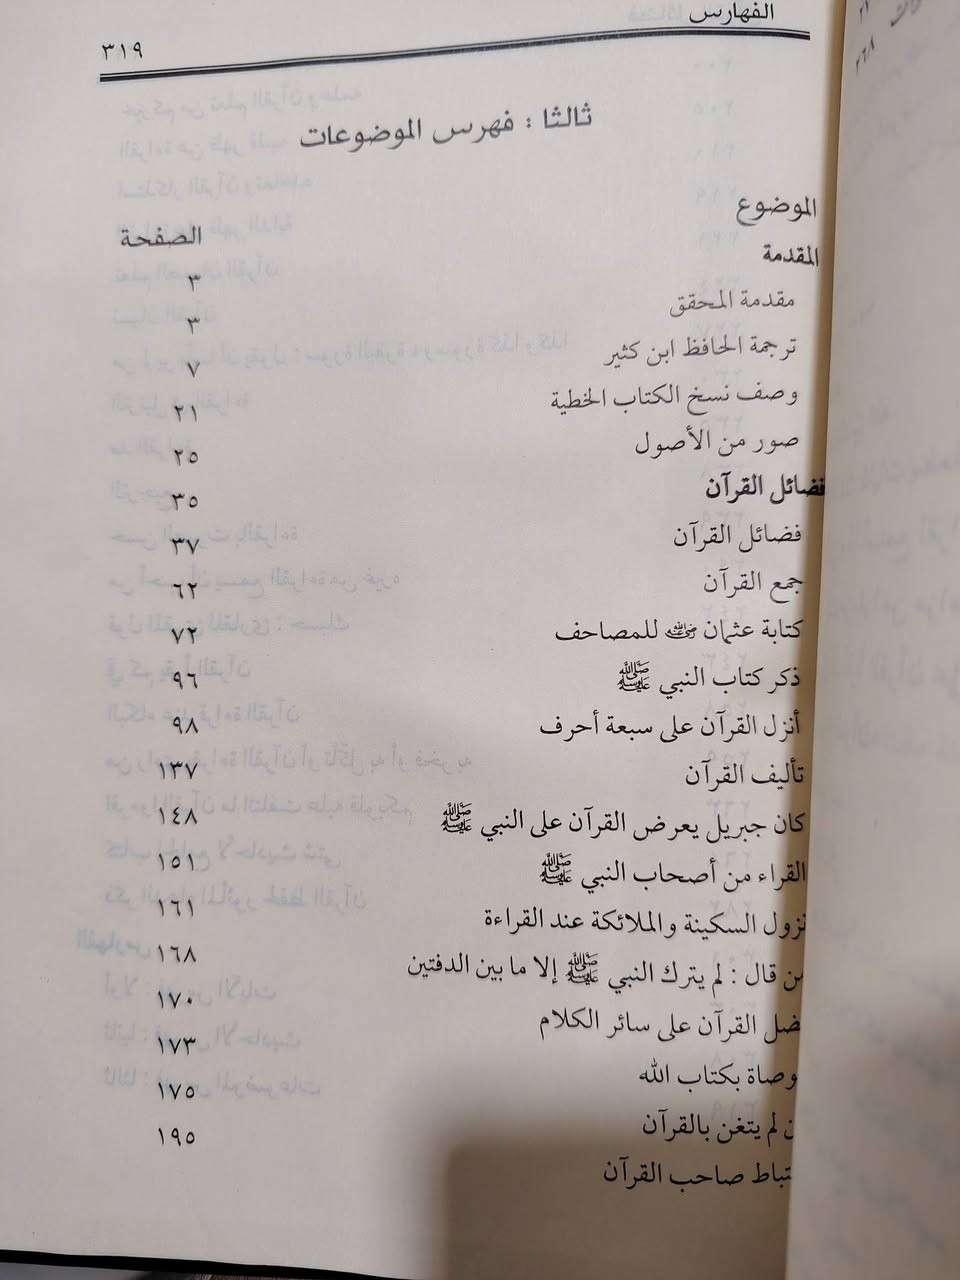 الفهارس ٣١٩
ثالثا : فهرس الموضوعات
الموضوع الصفحة
المقدمة ٣
مقدمة المحقق ٣
ترجمة الحافظ ابن كثير ٧
وصف نسخ الكتاب الخطية ٢١
صور من الأصول ٢٥
فضائل القرآن ٣٥
فضائل القرآن ٣٧
جمع القرآن ٦٢
كتابة عثمان رضي الله عنه للمصاحف ٧٢
ذكر كتاب النبي ﷺ ٩٦
أنزل القرآن على سبعة أحرف ٩٨
تأليف القرآن ١٣٧
كان جبريل يعرض القرآن على النبي ﷺ ١٤٨
القراء من أصحاب النبي ﷺ ١٥١
نزول السكينة والملائكة عند القراءة ١٦١
من قال : لم يترك النبي ﷺ إلا ما بين الدفتين ١٦٨
ضل القرآن على سائر الكلام ١٧٠
وصاة بكتاب الله ١٧٣
ن لم يتغن بالقرآن ١٧٥
تباط صاحب القرآن ١٩٥